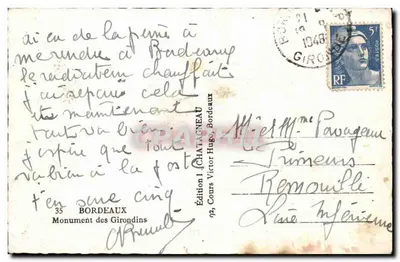 ai eu de la peine à
me rendre à Bordeaux
le radiateur chauffait
j'ai réparé cela
et maintenant
tout va bien
j'espère que tout
va bien à la poste
t'en serre cinq
35 BORDEAUX
Monument des Girondins
Édition J. CHATAGNEAU
92, Cours Victor Hugo, Bordeaux
21
1948
GIRONDE
5F
RF
Mr et Mme Pavageau
Primeurs
Remouillé
Loire Inférieure